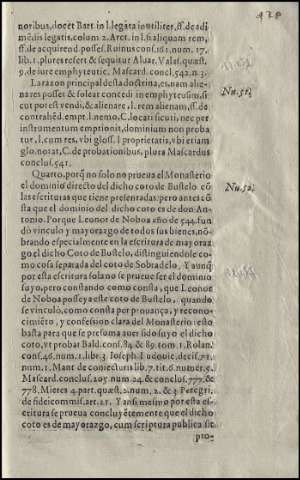 noribus, docet Bart. in l. legata inutiliter, ff. de adi
mēdis legatis, colum 2. Aret. in l. si aliquam rem,
ff. de acquirend. posses. Ruinus cons. 181. num. 17.
lib. 1. plures refert & sequitur Aluar. Valas. quæst.
9. de iure emphyteutic. Mascard. concl. 542. n. 3.
La razon principal desta doctrina, es, nam alie-
nares posse & solent concedi in emphyteusim, si
cut potest vendi, & alienare, l. rem alienam, ff. de
contrahēd. empt. l. nemo, C. locati sicuti, nec per
instrumentum emptionis, dominium non proba
tur, l. cum res, vbi gloss. l. proprietatis, vbi etiam
glo. notat, C. de probationibus, plura Mascardus
conclus. 541.
Nu. 51.
Quarto, porq̄ no solo no prueua el Monasterio
el dominio directo del dicho coto de Bustelo, cō
las escrituras que tiene presentadas, pero antes cō
sta que el dominio del dicho coto es de don An-
tonio. Porque Leonor de Noboa año de 544. fun
dò vinculo y mayorazgo de todos sus bienes, nō-
brando especialmente en la escritura de mayoraz
go el dicho Coto de Bustelo, distinguiendole co-
mo cosa separada del coto de Sobradelo, Y aunq̄
por esta escritura sola no se prueue ser el dominio
suyo, pero constando como consta, que Leonor
de Noboa posseya este coto de Bustelo, quando
se vinculo, como consta por prouança, y recono-
cimiēto, y confession clara del Monasterio esto
basta para que se presuma auer sido suyo el dicho
coto, vt probat Bald. cons. 84. & 89. tom. 1. Rolan.
cons. 46. num. 1. libr. 3. Ioseph. Ludouic. decis. 21.
num. 1. Mant. de coniectur. lib. 7. tit. 6. numer. 5.
Mascard. conclus. 205. num. 24. & conclus. 777. &
778. Mieres 4. part. quæst. 2. num. 2. & 3. Peregri.
de fideicommis. art. 21. Y ansi mesmo por esta es-
critura se prueua concluyētemente que el dicho
coto es de mayorazgo, cum scriptura publica sit
pro-
Nu. 52.